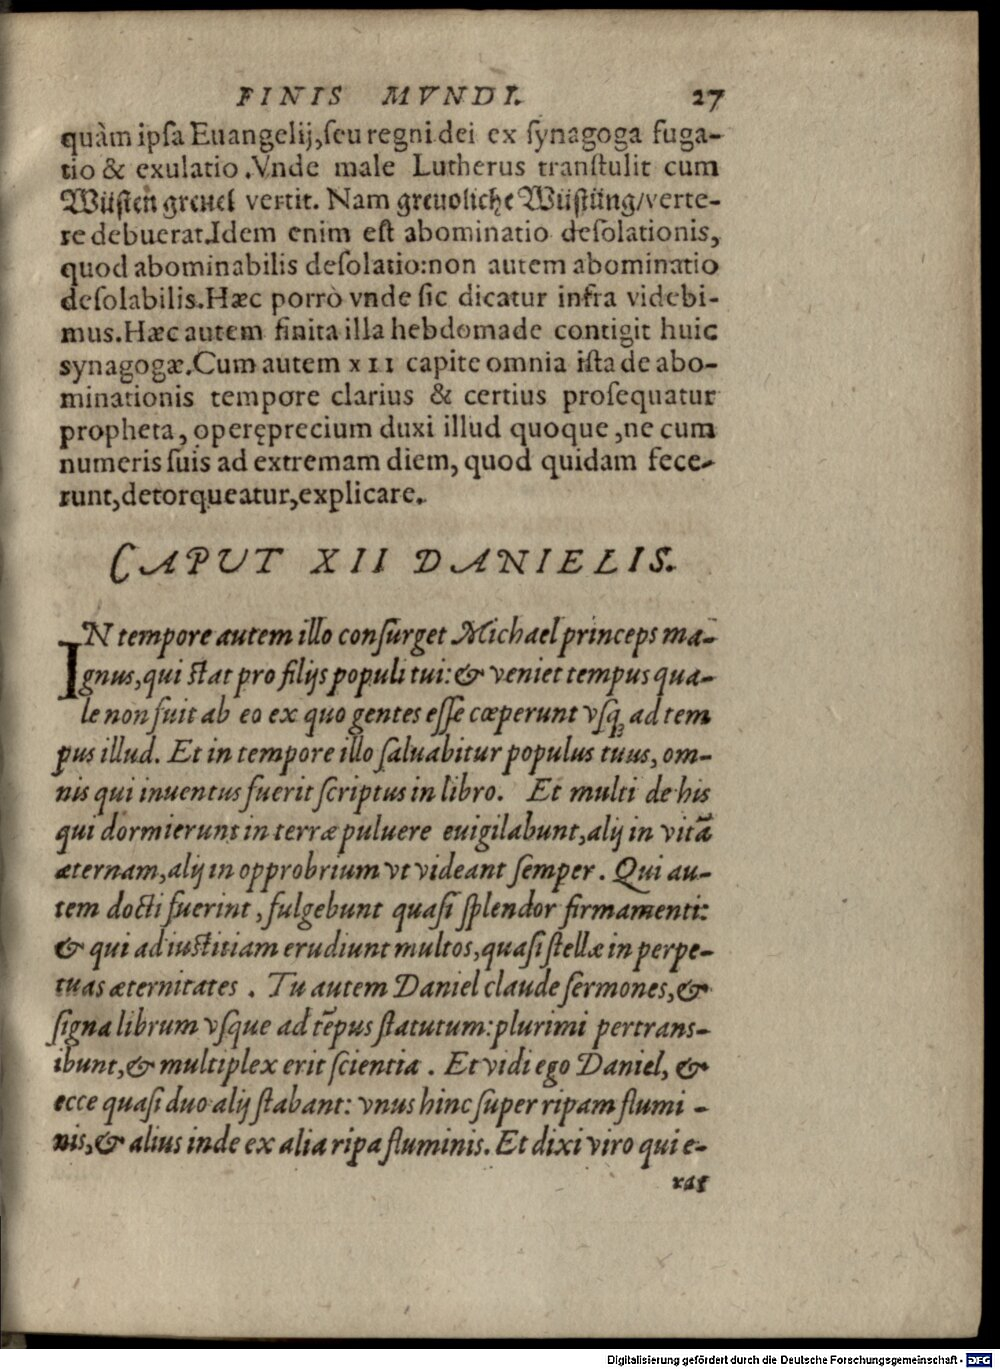 FINIS MVNDI. 27
quàm ipſa Euangelij,ſeu regni dei ex ſynagoga fuga-
tio & exulatio .Vnde male Lutherus tranſtulit cum
Wüſten greuel vertit. Nam greuoliche Wüſtũng/verte-
re debuerat.Idem enim eſt abominatio deſolationis,
quod abominabilis deſolatio:non autem abominatio
deſolabilis.Hæc porrò vnde ſic dicatur infra videbi-
mus.Hæc autem finita illa hebdomade contigit huic
synagogæ.Cum autem XII capite omnia iſta de abo-
minationis tempore clarius & certius proſequatur
propheta, operęprecium duxi illud quoque ,ne cum
numeris ſuis ad extremam diem, quod quidam fece-
runt,detorqueatur,explicare.
CAPUT XII DANIELIS.
IN tempore autem illo conſurget Michael princeps ma-
gnus,qui ſtat pro filijs populi tui:& veniet tempus qua-
le non fuit ab eo ex quo gentes eſſe cœperunt vſq̃ ad tem
pus illud. Et in tempore illo ſaluabitur populus tuus, om-
nis qui inuentus fuerit ſcriptus in libro. Et multi de his
qui dormierunt in terræ puluere euigilabunt,alij in vitã
æternam,alij in opprobrium vt videant ſemper. Qui au-
tem docti fuerint , fulgebunt quaſi ſplendor firmamenti:
& qui ad iuſtitiam erudiunt multos,quaſi ſtellæ in perpe-
tuas æternitates . Tu autem Daniel claude ſermones,&
ſigna librum vſque ad tẽpus ſtatutum:plurimi pertrans-
ibunt,& multiplex erit ſcientia . Et vidi ego Daniel, &
ecce quaſi duo alij ſtabant: vnus hinc ſuper ripam flumi -
nis,& alius inde ex alia ripa fluminis. Et dixi viro qui e-
rat
Digitalisierung gefördert durch die Deutsche Forschungsgemeinschaft - DFG